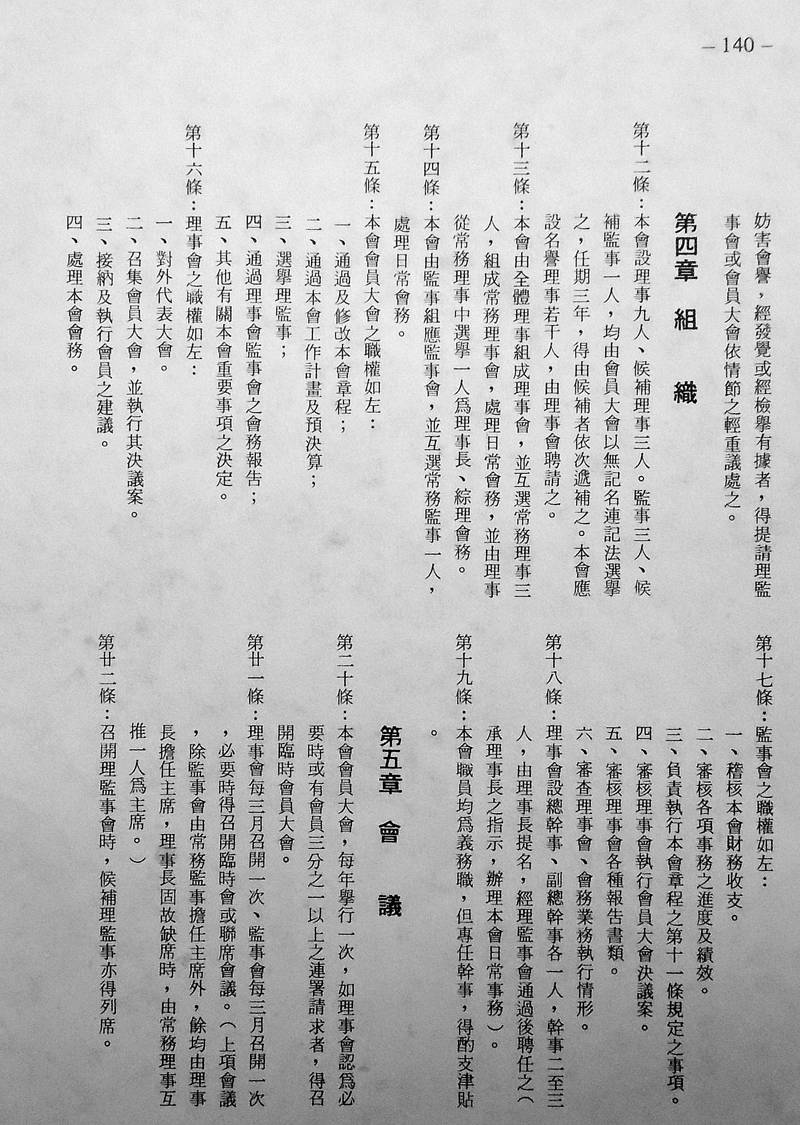 – 140 –
妨害會譽，經發覺或經檢舉有據者，得提請理監
事會或會員大會依情節之輕重議處之。
第四章 組 織
第十二條：本會設理事九人、候補理事三人。監事三人、候
補監事一人，均由會員大會以無記名連記法選舉
之，任期三年，得由候補者依次遞補之。本會應
設名譽理事若干人，由理事會聘請之。
第十三條：本會由全體理事組成理事會，並互選常務理事三
人，組成常務理事會，處理日常會務，並由理事
從常務理事中選舉一人爲理事長、綜理會務。
第十四條：本會由監事組應監事會，並互選常務監事一人，
處理日常會務。
第十五條：本會會員大會之職權如左：
一、通過及修改本會章程；
二、通過本會工作計畫及預決算；
三、選舉理監事；
四、通過理事會監事會之會務報告；
五、其他有關本會重要事項之決定。
第十六條：理事會之職權如左：
一、對外代表大會。
二、召集會員大會，並執行其決議案。
三、接納及執行會員之建議。
四、處理本會會務。
第十七條：監事會之職權如左：
一、稽核本會財務收支。
二、審核各項事務之進度及績效。
三、負責執行本會章程之第十一條規定之事項。
四、審核理事會執行會員大會決議案。
五、審核理事會各種報告書類。
六、審查理事會、會務業務執行情形。
第十八條：理事會設總幹事、副總幹事各一人，幹事二至三
人，由理事長提名，經理監事會通過後聘任之（
承理事長之指示，辦理本會日常事務）。
第十九條：本會職員均爲義務職，但專任幹事，得酌支津貼
。
第五章 會 議
第二十條：本會會員大會，每年舉行一次，如理事會認爲必
要時或有會員三分之一以上之連署請求者，得召
開臨時會員大會。
第廿一條：理事會每三月召開一次、監事會每三月召開一次
，必要時得召開臨時會或聯席會議。（上項會議
，除監事會由常務監事擔任主席外，餘均由理事
長擔任主席，理事長固故缺席時，由常務理事互
推一人爲主席。）
第廿二條：召開理監事會時，候補理監事亦得列席。